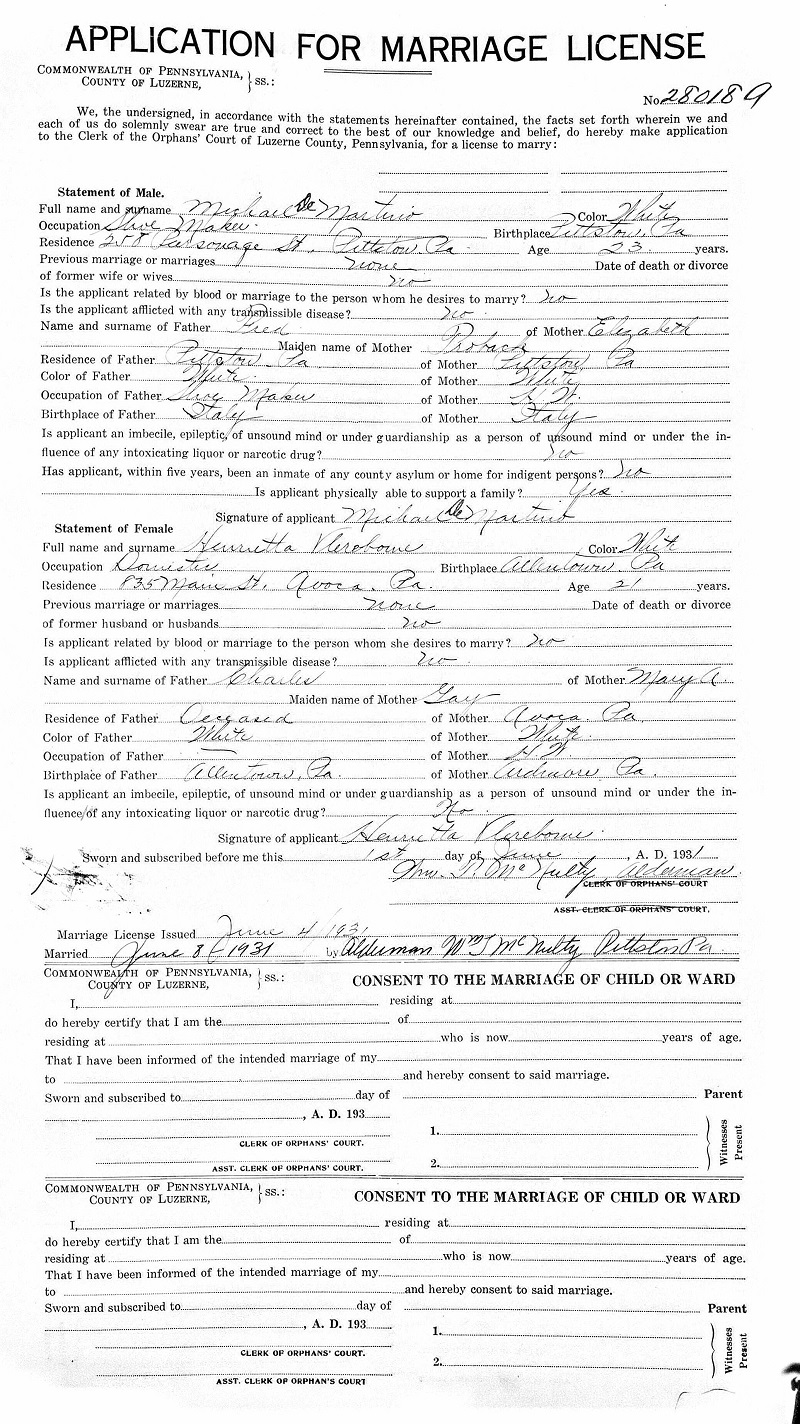 APPLICATION FOR MARRIAGE LICENSE
COMMONWEALTH OF PENNSYLVANIA, } SS.:
COUNTY OF LUZERNE,
No. 280189
We, the undersigned, in accordance with the statements hereinafter contained, the facts set forth wherein we and
each of us do solemnly swear are true and correct to the best of our knowledge and belief, do hereby make application
to the Clerk of the Orphans' Court of Luzerne County, Pennsylvania, for a license to marry:
Statement of Male.
Full name and surname Michael De Martino Color White
Occupation Shoe Maker Birthplace Pittston, Pa
Residence 258 Parsonage St. Pittston Pa. Age 23 years.
Previous marriage or marriages none Date of death or divorce
of former wife or wives no
Is the applicant related by blood or marriage to the person whom he desires to marry? no
Is the applicant afflicted with any transmissible disease? no
Name and surname of Father Fred of Mother Elizabeth
Maiden name of Mother
Residence of Father Pittston Pa of Mother Pittston Pa
Color of Father White of Mother White
Occupation of Father Shoe Maker of Mother H. W.
Birthplace of Father Italy of Mother Italy
Is applicant an imbecile, epileptic, of unsound mind or under guardianship as a person of unsound mind or under the in-
fluence of any intoxicating liquor or narcotic drug? no
Has applicant, within five years, been an inmate of any county asylum or home for indigent persons? no
Is applicant physically able to support a family? Yes.
Signature of applicant Michael De Martino
Statement of Female
Full name and surname Henrietta Vlerebome Color White
Occupation Domestic Birthplace Allentown, Pa
Residence 835 Main St. Avoca, Pa. Age 21 years.
Previous marriage or marriages none Date of death or divorce
of former husband or husbands no
Is applicant related by blood or marriage to the person whom she desires to marry? no
Is applicant afflicted with any transmissible disease? no.
Name and surname of Father Charles of Mother Mary A.
Maiden name of Mother Gay
Residence of Father Deceased of Mother Avoca, Pa
Color of Father White of Mother White.
Occupation of Father — of Mother H. W.
Birthplace of Father Allentown, Pa. of Mother Ardmore Pa.
Is applicant an imbecile, epileptic, of unsound mind or under guardianship as a person of unsound mind or under the in-
fluence of any intoxicating liquor or narcotic drug? No.
Signature of applicant Henrietta Vlerebome.
Sworn and subscribed before me this 1st day of June, A. D. 1931
Wm. T. McNulty, Alderman.
CLERK OF ORPHANS' COURT
ASST. CLERK OF ORPHANS' COURT.
Marriage License Issued June 4/1931
Married June 8-1931 by Alderman Wm T McNulty Pittston Pa.
COMMONWEALTH OF PENNSYLVANIA, } SS.:
COUNTY OF LUZERNE,
CONSENT TO THE MARRIAGE OF CHILD OR WARD
I, residing at
do hereby certify that I am the of
residing at who is now years of age.
That I have been informed of the intended marriage of my
to and hereby consent to said marriage.
Sworn and subscribed to day of Parent
, A. D. 193
1.
CLERK OF ORPHANS' COURT.
2.
ASST. CLERK OF ORPHANS' COURT.
Witnesses Present
COMMONWEALTH OF PENNSYLVANIA, } SS.:
COUNTY OF LUZERNE,
CONSENT TO THE MARRIAGE OF CHILD OR WARD
I, residing at
do hereby certify that I am the of
residing at who is now years of age.
That I have been informed of the intended marriage of my
to and hereby consent to said marriage.
Sworn and subscribed to day of Parent
, A. D. 193
1.
CLERK OF ORPHANS' COURT.
2.
ASST. CLERK OF ORPHAN'S COURT
Witnesses Present